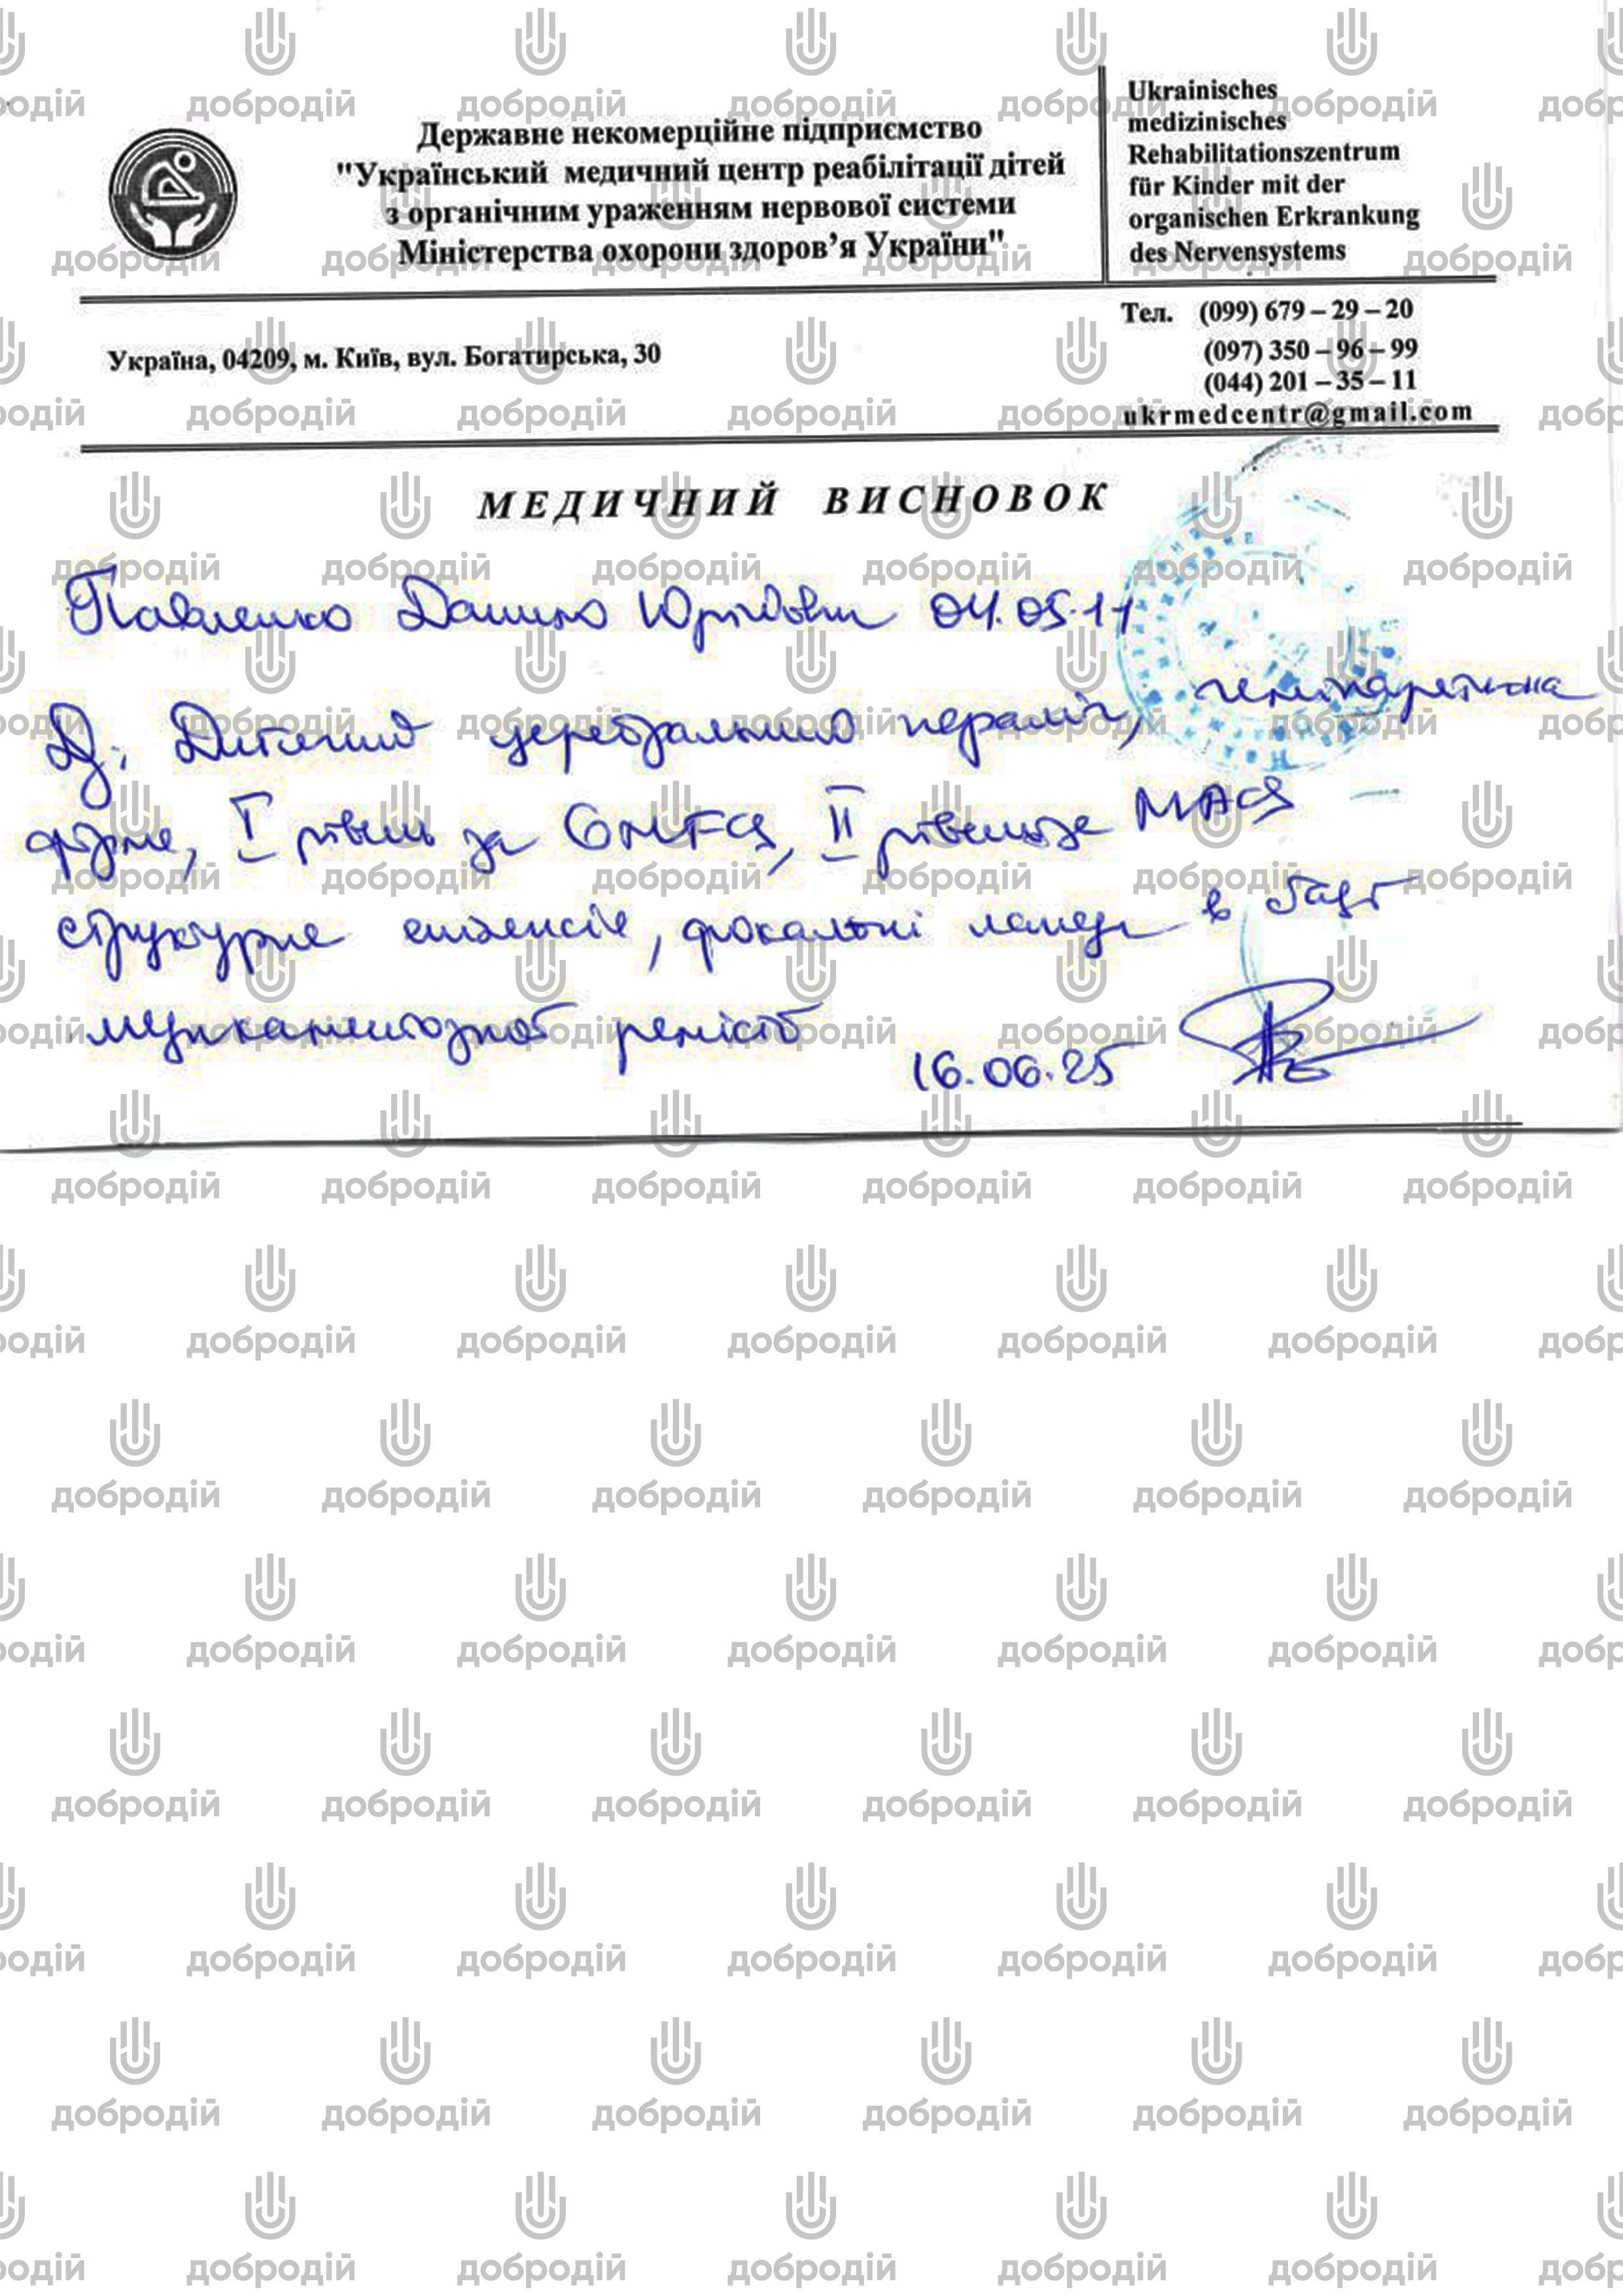 Державне некомерційне підприємство
"Український медичний центр реабілітації дітей
з органічним ураженням нервової системи
Міністерства охорони здоров’я України"
Ukrainisches
medizinisches
Rehabilitationszentrum
für Kinder mit der
organischen Erkrankung
des Nervensystems
Україна, 04209, м. Київ, вул. Богатирська, 30
Тел. (099) 679 – 29 – 20
(097) 350 – 96 – 99
(044) 201 – 35 – 11
ukrmedcentr@gmail.com
МЕДИЧНИЙ ВИСНОВОК
Павленко Данило Юрійович 04.05.11
Д: Дитячий церебральний параліч, геміпаретична
форма, I рівень за GMFCS, II рівень за MACS
структурна епілепсія, фокальні напади в стадії
медикаментозної ремісії
16.06.25
добродій